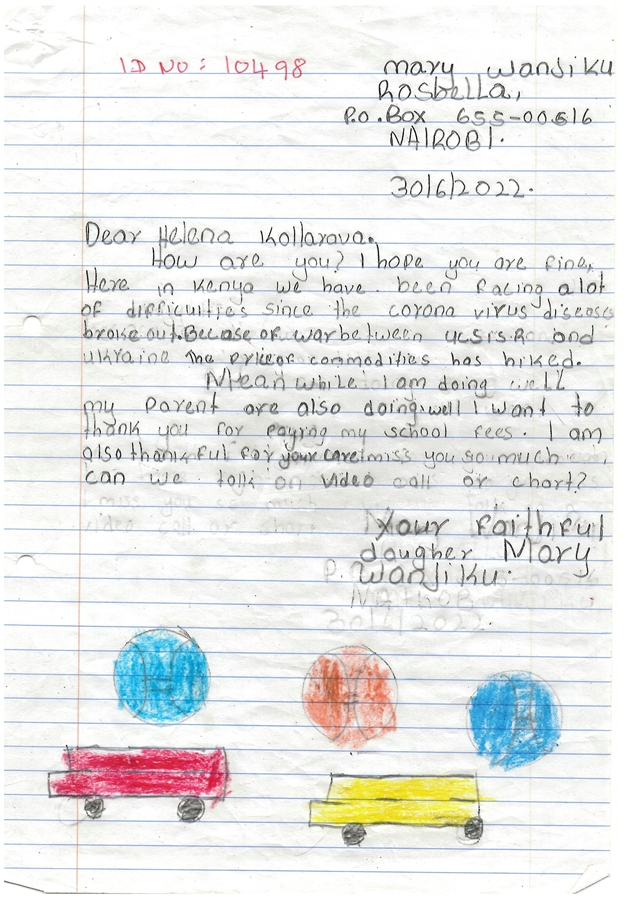 ID NO: 10498
Mary Wanjiku
Rosbella,
P.O.Box 655-00516
NAIROBI.
30/6/2022.
Dear Helena Kollarova.
How are you? I hope you are fine,
Here in Kenya we have been facing a lot
of difficulties since the corona virus diseases
broke out. Becase of war between and
ukraine the price of commodities has hiked.
Mean while I am doing well
my parent are also doing well I want to
thank you for paying my school fees. I am
also thank ful for your care I miss you so much
can we talk on video call or chart?
Your faithful
dougher Mary
Wanjiku.